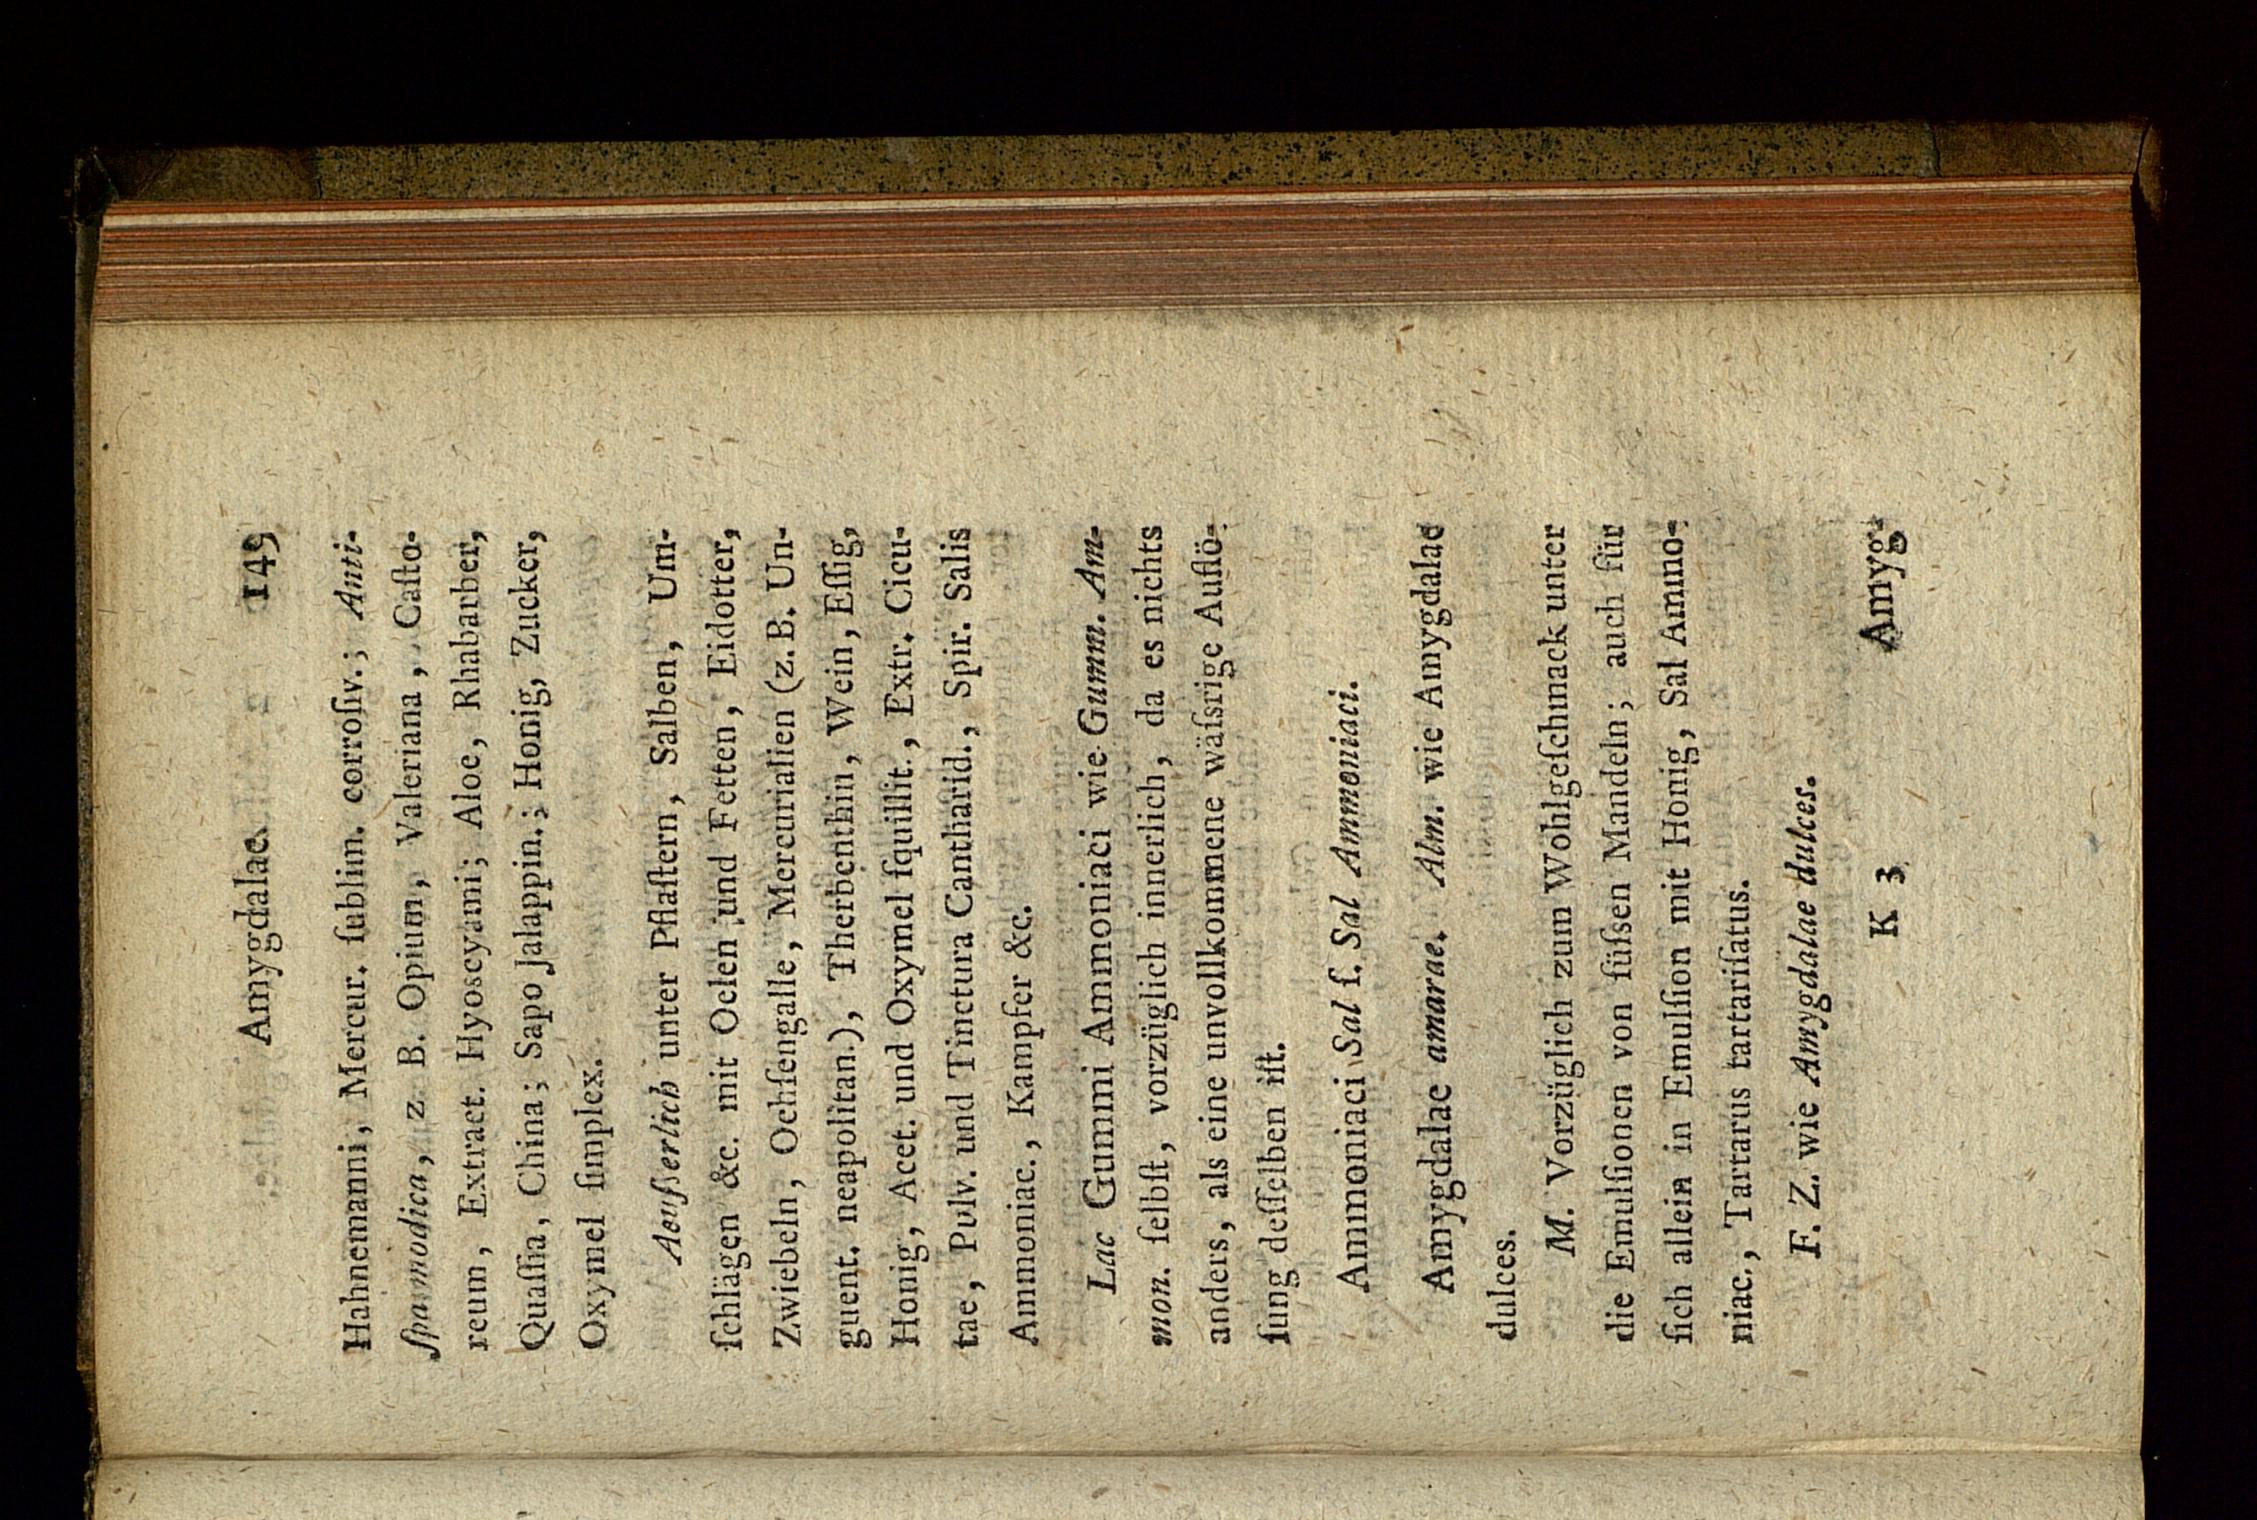 Amygdalae. 149
Hahnemanni, Mercur. ſublim. corroſiv.; Anti-
ſpasmodica, z B. Opium, Valeriana, Caſto-
reum, Extract. Hyoscyami; Aloe, Rhabarber,
Quaſſia, China; Sapo Jalappin.; Honig, Zucker,
Oxymel ſimplex.
Aeuſserlich unter Pflaſtern, Salben, Um-
ſchlägen &c. mit Oelen und Fetten, Eidotter,
Zwiebeln, Ochſengalle, Mercurialien (z. B. Un-
guent. neapolitan.), Therbenthin, Wein, Eſſig,
Honig, Acet. und Oxymel ſquillit., Extr. Cicu-
tae, Pulv. und Tinctura Cantharid., Spir. Salis
Ammoniac., Kampfer &c.
Lac Gummi Ammoniaci wie Gumm. Am-
mon. ſelbſt, vorzüglich innerlich, da es nichts
anders, als eine unvollkommene wäſsrige Auflö-
ſung deſſelben iſt.
Ammoniaci Sal ſ. Sal Ammoniaci.
Amygdalae amarae. Alm. wie Amygdalae
dulces.
M. Vorzüglich zum Wohlgeſchmack unter
die Emulſionen von ſüſsen Mandeln; auch für
ſich allein in Emulſion mit Honig, Sal Ammo-
niac., Tartarus tartariſatus.
F. Z. wie Amygdalae dulces.
K 3 Amyg-